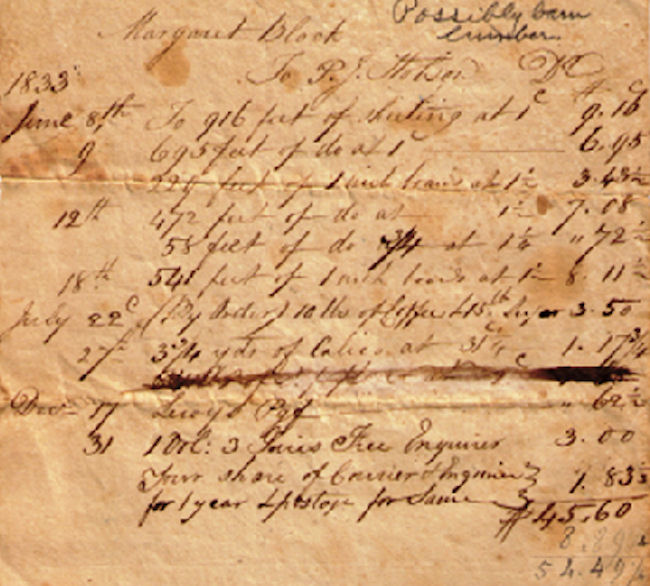 Possibly barn
lumber.
Margaret Block
To P. J. Dr
1833 $ C
June 8th To 916 feet of sheeting at 1c 9.16
9 695 feet of do at 1c 6.95
229 feet of 1 inch boards at 1½ 3.43½
12th 472 feet of do at 1½ 7.08
58 feet of do at 1¼ " 72½
18th 541 feet of 1 inch boards at 1½ 8.11½
July 22d (By Order) 10 lbs of Coffee & 15 lb Sugar 3.50
27th 3¾ yds of Calico at 31¼ 1.17¾
Dec 17 " 62½
31 1 Vol: 3 Series Free Enquirer 3.00
Your share of Courier & Enquirer
for 1 year & postage for Same 1.83½
$45.60
8.
54.49